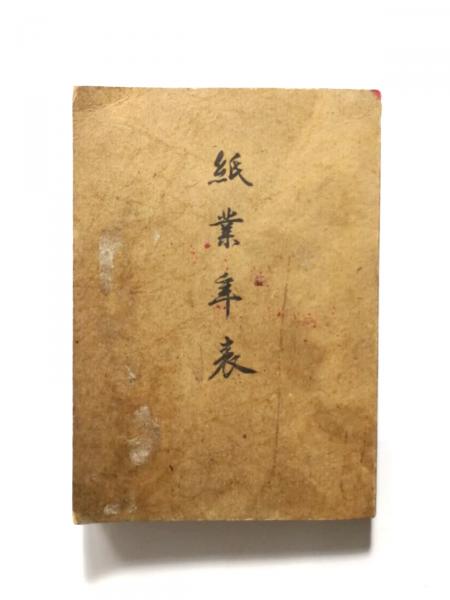 紙業年表